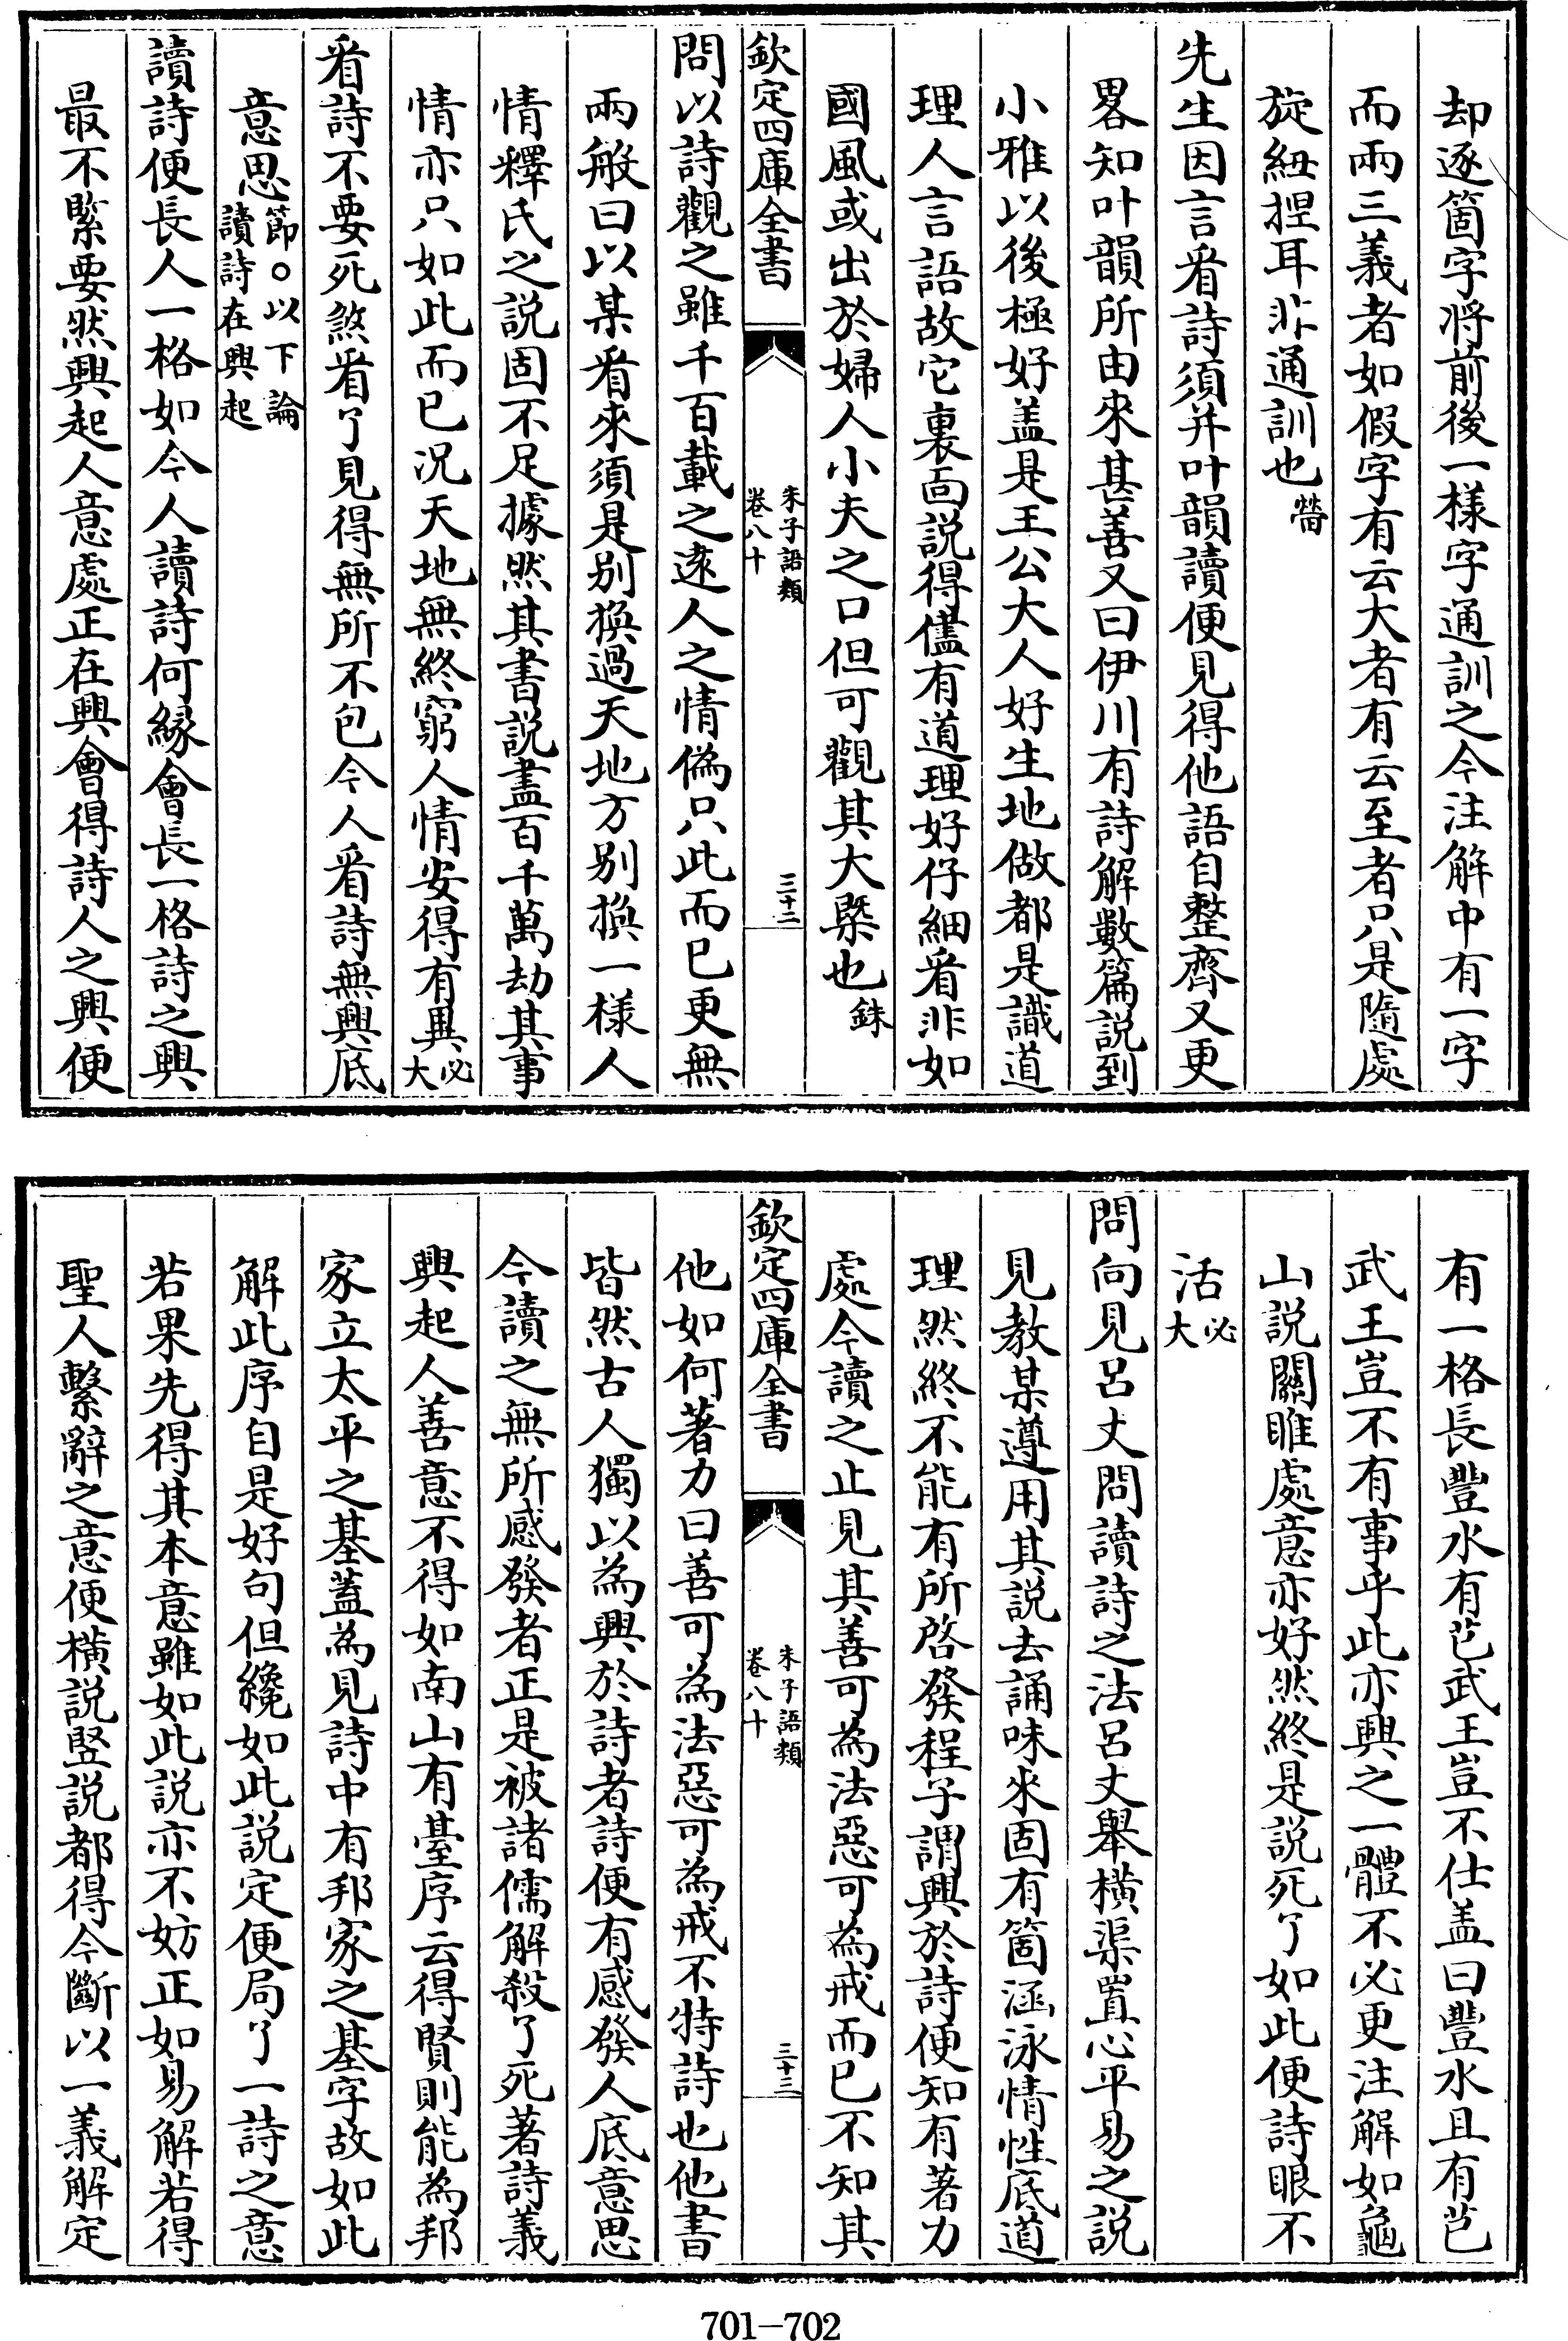 却逐箇字将前後一様字通訓之今注解中有一字
而兩三義者如假字有云大者有云至者只是隨處
旋紐捏耳非通訓也㽦
先生因言看詩須并叶韻讀便見得他語自整齊又更
畧知叶韻所由來甚善又曰伊川有詩解數篇説到
小雅以後極好盖是王公大人好生地做都是識道
理人言語故它裏面説得儘有道理好仔細看非如
國風或出於婦人小夫之口但可觀其大槩也銖
欽定四庫全書
朱子語類
卷八十
三十二
問以詩觀之雖千百載之逺人之情偽只此而已更無
兩般曰以某看來須是别換過天地方别換一様人
情釋氏之説固不足據然其書説盡百千萬劫其事
情亦只如此而已况天地無終窮人情安得有異必大
看詩不要死煞看了見得無所不包今人看詩無興底
意思節○以下論讀詩在興起
讀詩便長人一格如今人讀詩何縁會長一格詩之興
最不緊要然興起人意處正在興會得詩人之興便
有一格長豐水有芑武王豈不仕盖曰豐水且有芑
武王豈不有事乎此亦興之一體不必更注解如龜
山説關雎處意亦好然終是説死了如此便詩眼不
活必大
問向見呂丈問讀詩之法呂丈舉横渠置心平易之説
見教某遵用其説去誦味來固有箇涵泳情性底道
理然終不能有所啓發程子謂興於詩便知有著力
處今讀之止見其善可為法惡可為戒而已不知其
欽定四庫全書
朱子語類
卷八十
三十三
他如何著力曰善可為法惡可為戒不特詩也他書
皆然古人獨以為興於詩者詩便有感發人底意思
今讀之無所感發者正是被諸儒解殺了死著詩義
興起人善意不得如南山有臺序云得賢則能為邦
家立太平之基蓋為見詩中有邦家之基字故如此
解此序自是好句但纔如此説定便局了一詩之意
若果先得其本意雖如此説亦不妨正如易解若得
聖人繫辭之意便横説豎説都得今斷以一義解定
701—702